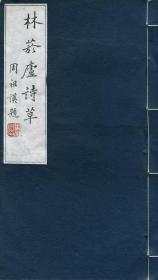 林菸廬詩草
周祖謨題